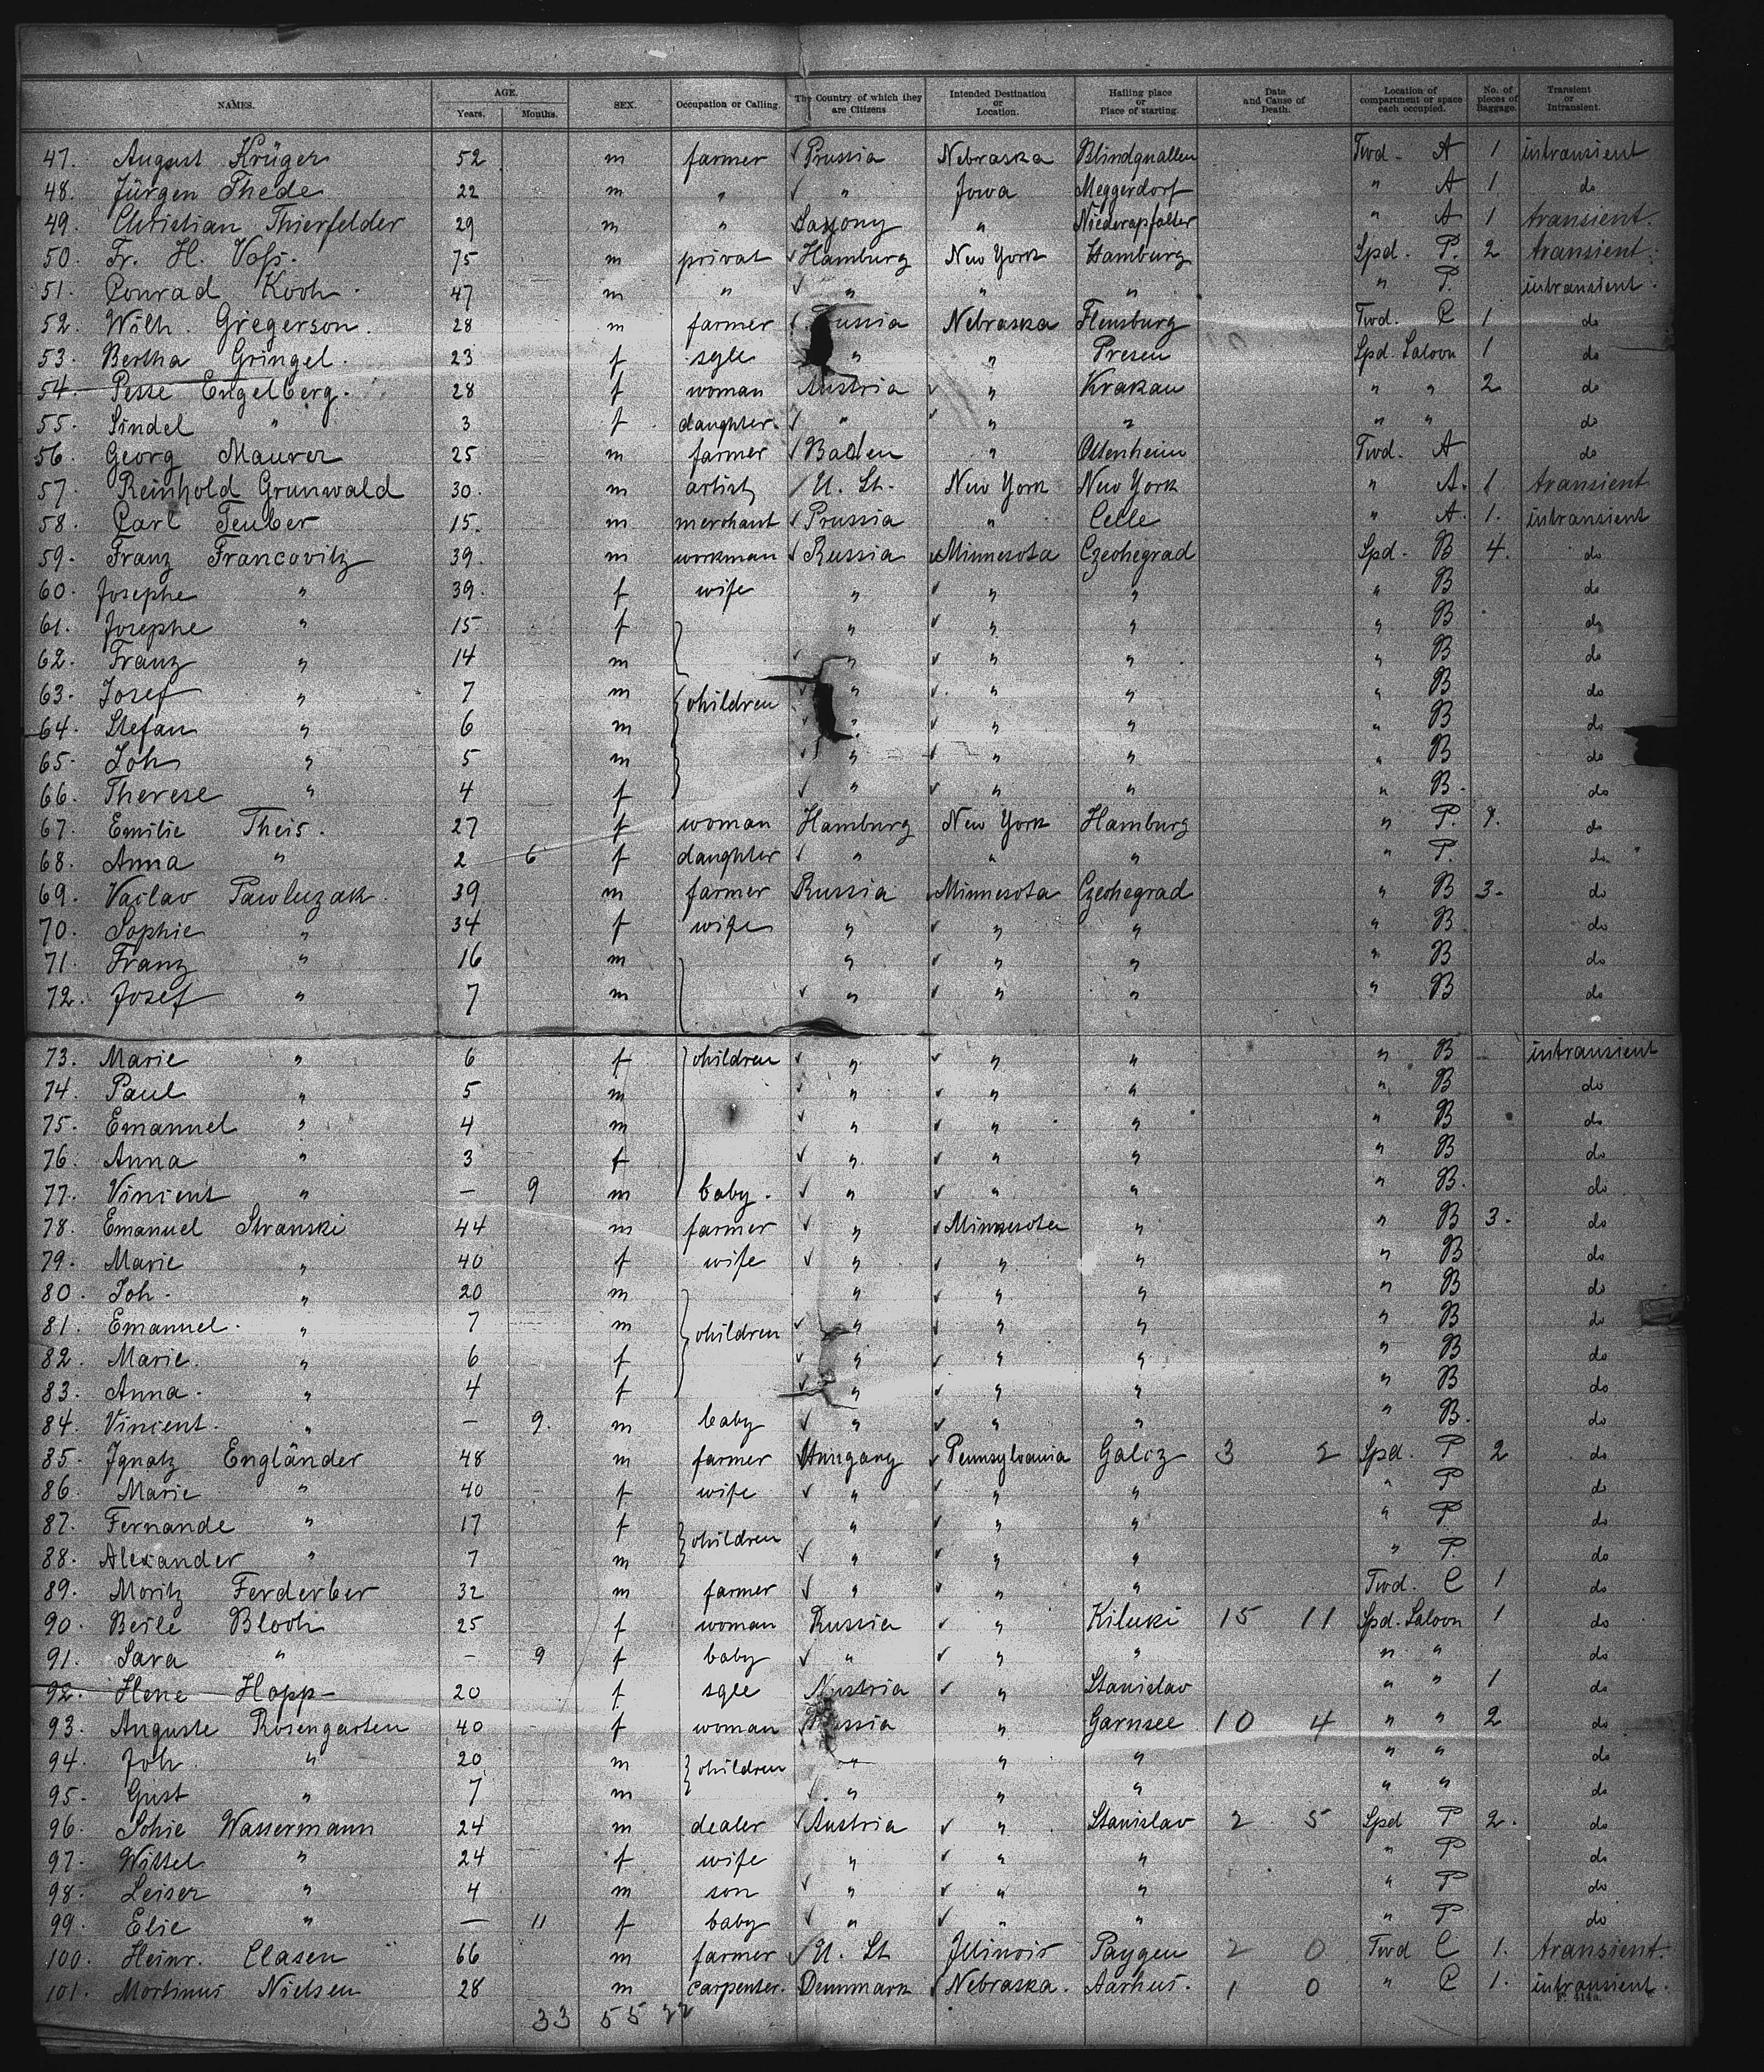 NAMES. AGE. Years. Months. SEX. Occupation or Calling. The Country of which they are Citizens Intended Destination or Location. Hailing place or Place of starting. Date and Cause of Death. Location of compartment or space each occupied. No. of pieces of Baggage. Transient or Intransient.
47. August Krüger 52 m farmer ✓ Prussia Nebraska Blindgnallen Twd - A 1 intransient
48. Jürgen Thede 22 m " ✓ " Jowa Meggerdorf " A 1 do
49. Christian Thierfelder 29 m " Saxony " " A 1 transient.
50. Fr. H. Voß. 75 m privat ✓ Hamburg New York Hamburg Spd. P. 2 transient.
51. Conrad Koch. 47 m " ✓ " " " " P. intransient.
52. Wilh. Gregerson. 28 m farmer Nebraska Flensburg Twd. C 1 do
53. Bertha Gringel. 23 f sgle " " Presen Spd. Saloon 1 do
54. Pesse Engelberg. 28 f woman Austria ✓ " Krakau " " 2 do
55. Sindel " 3 f daughter. ✓ " ✓ " " " " do
56. Georg Maurer 25 m farmer ✓ Baden " Ottenheim Twd. A do
57. Reinhold Grunwald 30. m artist ✓ U. St. New York New York " A. 1 transient
58. Carl Teuber 15. m merchant ✓ Prussia " Celle " A. 1. intransient
59. Franz Francovitz 39. m workman ✓ Russia ✓ Minnesota Czechegrad Spd - B 4. do
60. Josephe " 39. f wife " ✓ " " " B do
61. Josephe " 15 f " ✓ " " " B do
62. Franz " 14 m ✓ " ✓ " " " B do
63. Josef " 7 m children ✓ " ✓ " " " B do
64. Stefan " 6 m ✓ " ✓ " " " B do
65. Joh " 5 m ✓ " ✓ " " " B do
66. Therese " 4 f ✓ " ✓ " " " B. do
67. Emilie Theis. 27 f woman Hamburg New York Hamburg " P. do
68. Anna " 2 6 f daughter ✓ " " " " P. do
69. Vaclav Pawluzak. 39 m farmer Russia ✓ Minnesota Czechegrad " B 3. do
70. Sophie " 34 f wife " ✓ " " " B do
71. Franz " 16 m " ✓ " " " B do
72. Josef " 7 m ✓ " ✓ " " " B do
73. Marie " 6 f children ✓ " ✓ " " " B intransient
74. Paul " 5 m ✓ " ✓ " " " B do
75. Emanuel " 4 m ✓ " ✓ " " " B do
76. Anna " 3 f ✓ " ✓ " " " B do
77. Vincent " — 9 m baby. ✓ " ✓ " " " B. do
78. Emanuel Stranski 44 m farmer ✓ " ✓ Minnesota " " B 3. do
79. Marie " 40 f wife ✓ " ✓ " " " B do
80. Joh. " 20 m " ✓ " " " B do
81. Emanuel. " 7 m children ✓ " ✓ " " " B do
82. Marie. " 6 f ✓ " ✓ " " " B do
83. Anna. " 4 f ✓ " ✓ " " " B do
84. Vincent. " — 9. m baby ✓ " ✓ " " " B. do
85. Jgnatz Engländer 48 m farmer ✓ Hungary ✓ Pennsylvania Galiz 3 2 Spd. P 2 do
86. Marie " 40 f wife ✓ " ✓ " " " P do
87. Fernande " 17 f children " ✓ " " " P do
88. Alexander " 7 m ✓ " ✓ " " " P. do
89. Moritz Ferderber 32 m farmer ✓ " ✓ " " Twd. C 1 do
90. Beile Bloch 25 f woman Russia ✓ " Kiluki 15 11 Spd. Saloon 1 do
91. Sara " — 9 f baby ✓ " ✓ " " " " do
92. Hene Hopp 20 f sgle Austria ✓ " Stanislav " " 1 do
93. Auguste Rosengarten 40 f woman " Garnsee 10 4 " " 2 do
94. Joh. " 20 m children " " " " " do
95. Gust " 7 m ✓ " " " " " do
96. Schie Wassermann 24 m dealer ✓ Austria ✓ " Stanislav 2 5 Spd P 2. do
97. Wittel " 24 f wife " ✓ " " " P do
98. Leiser " 4 m son ✓ " ✓ " " " P do
99. Elie " — 11 f baby ✓ " ✓ " " " P do
100. Heinr. Clasen 66 m farmer ✓ U. St Jllinois Paygen 2 0 Twd C 1. transient.
101. Mortinus Nielsen 28 m carpenter. Denmark ✓ Nebraska. Aarhus. 1 0 " C 1. intransient.
33 55 22
F. 414a.